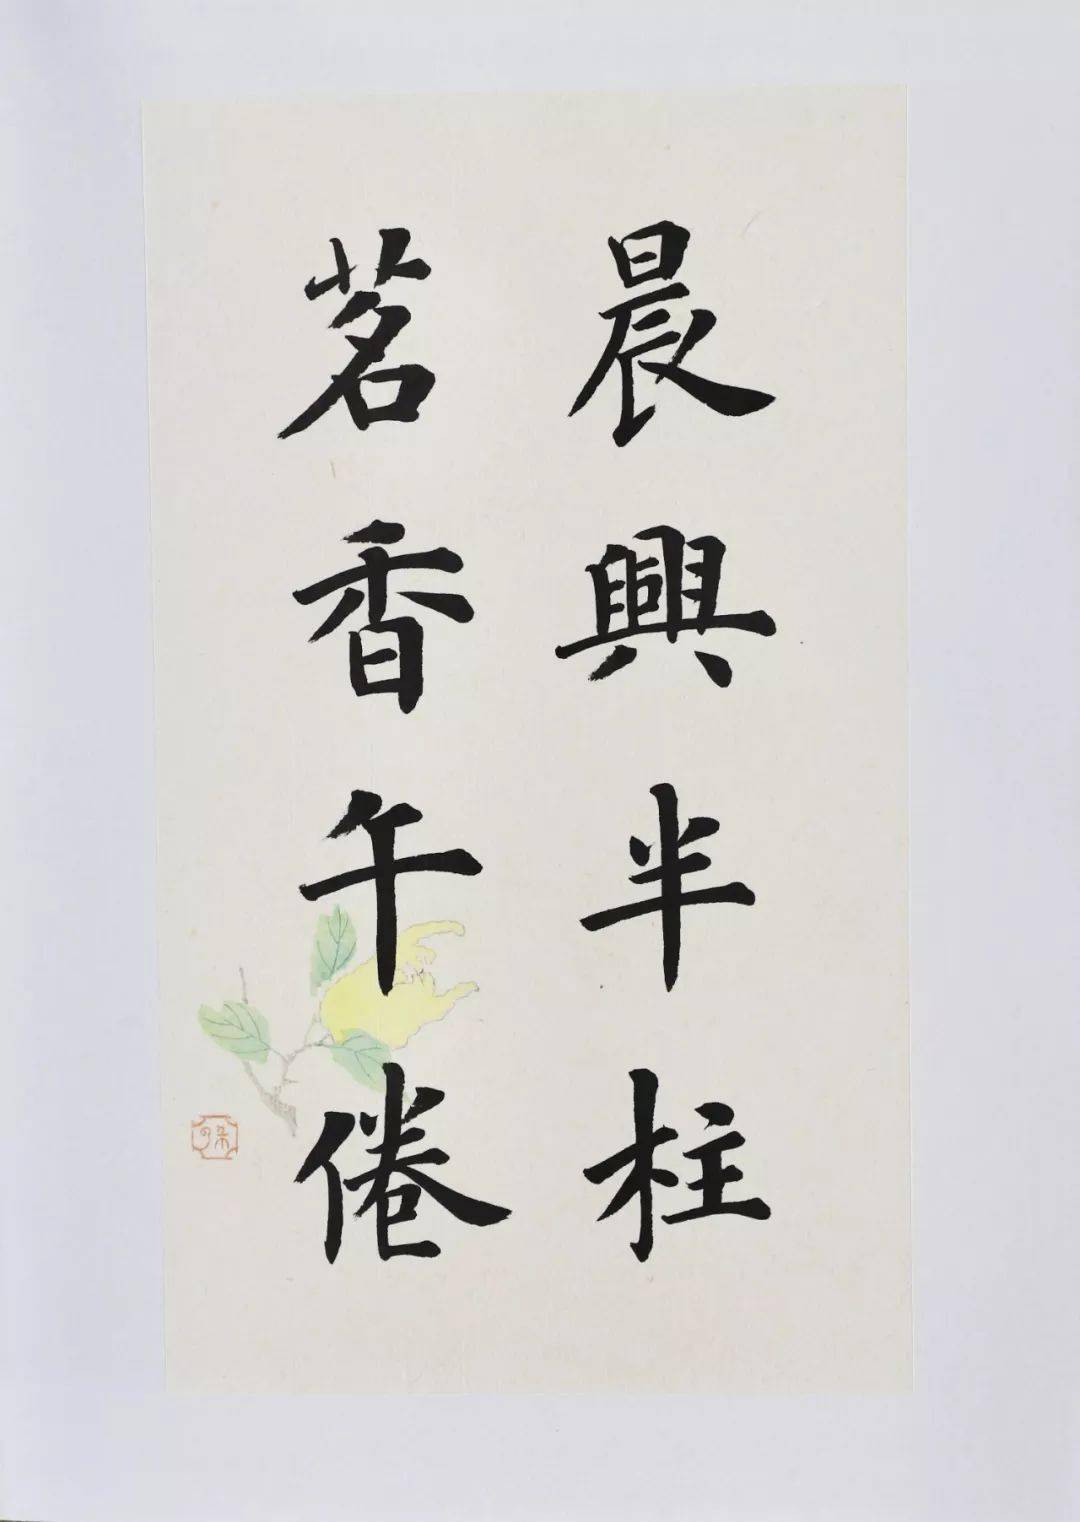 晨興半柱
茗香午倦